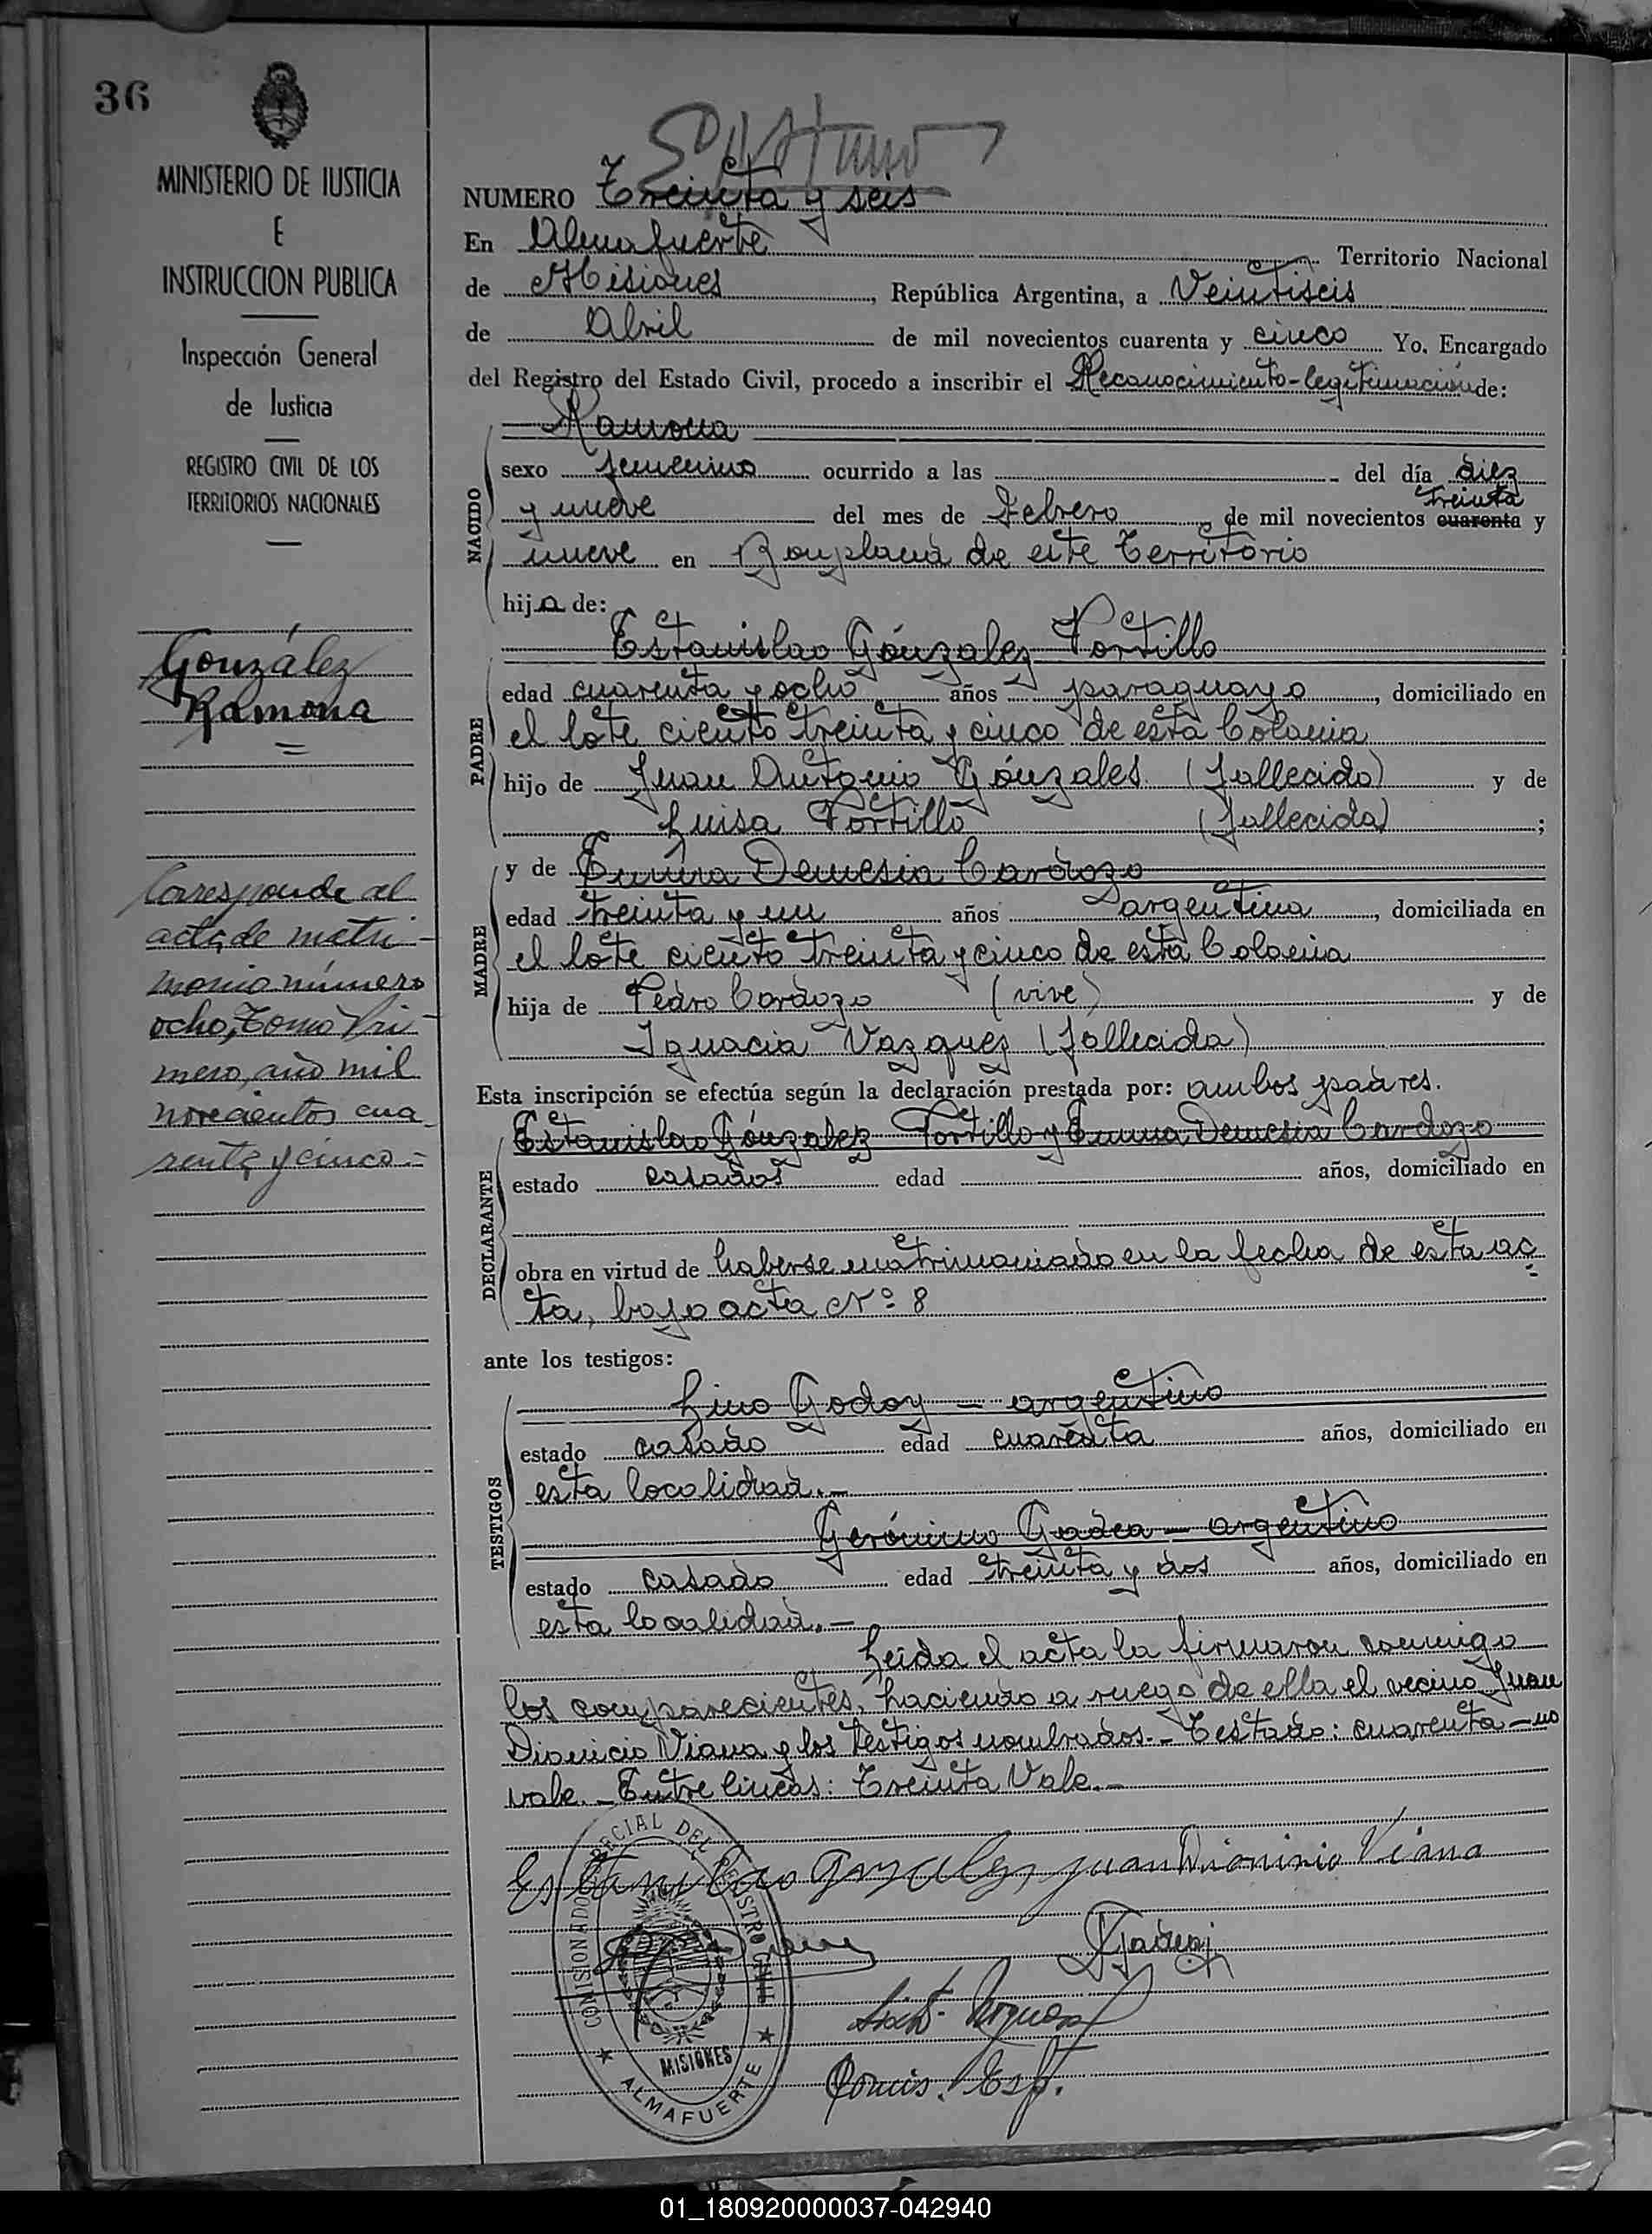 36
MINISTERIO DE JUSTICIA
E
INSTRUCCION PUBLICA
Inspección General
de Justicia
REGISTRO CIVIL DE LOS
TERRITORIOS NACIONALES
González
Ramona
Corresponde al
acta de matri-
monio número
ocho, Tomo Pri-
mero, año mil
novecientos cua
renta y cinco.=
NUMERO Treinta y seis
En Almafuerte Territorio Nacional
de Misiones, República Argentina, a Veintiseis
de Abril de mil novecientos cuarenta y cinco Yo, Encargado
del Registro del Estado Civil, procedo a inscribir el Reconocimiento-legitimación de:
NACIDO
Ramona
sexo femenino ocurrido a las del día diez
treinta
y nueve del mes de Febrero, de mil novecientos cuarenta y
nueve en Bonpland de este Territorio
hija de:
PADRE
Estanislao Gónzalez Portillo
edad cuarenta y ocho años paraguayo, domiciliado en
el lote ciento treinta y cinco de esta Colonia
hijo de Juan Antonio Gónzales (fallecido) y de
Luisa Portillo (fallecida);
MADRE
y de Emma Demesia Cardozo
edad treinta y un años argentina, domiciliada en
el lote ciento treinta y cinco de esta Colonia
hija de Pedro Cardozo (vive) y de
Ignacia Vazquez (fallecida)
Esta inscripción se efectúa según la declaración prestada por: ambos padres.
DECLARANTE
Estanislao Gónzalez Portillo y Emma Demesia Cardozo
estado casados edad años, domiciliado en
obra en virtud de haberse matrimoniado en la fecha de esta ac
ta, bajo acta Nº 8
ante los testigos:
TESTIGOS
Lino Godoy - argentino
estado casado edad cuarenta años, domiciliado en
esta localidad.-
Gerónimo Gadea - argentino
estado casado edad treinta y dos años, domiciliado en
esta localidad.-
Leida el acta la firmaron conmigo
los comparecientes, haciendo a ruego de ella el vecino Juan
Dionicio Viana y los testigos nombrados.- Testado: cuarenta - no
vale.- Entre lineas: Treinta Vale.-
Estanislao Gonzalez Juan Dionisio Viana
Comis. Esp.
COMISIONADO ESPECIAL DEL REGISTRO CIVIL
MISIONES
ALMAFUERTE
01_180920000037-042940